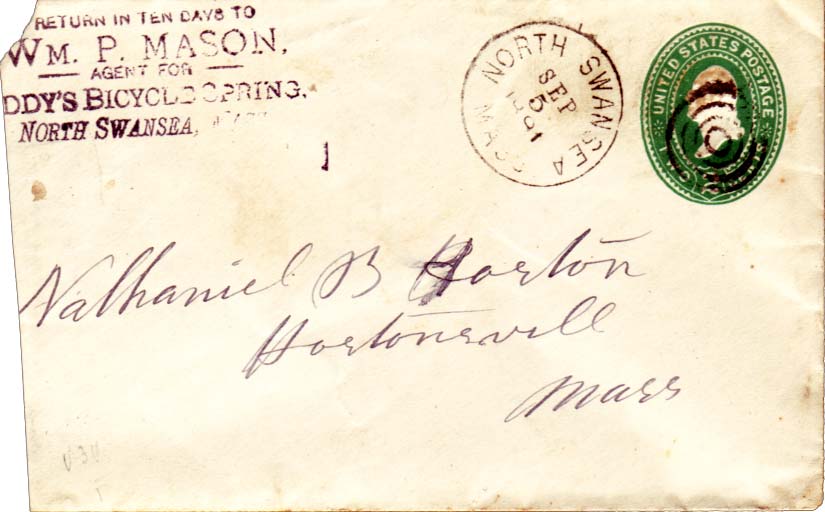 RETURN IN TEN DAYS TO
WM. P. MASON,
AGENT FOR
DDY'S BICYCLE SPRING.
NORTH SWANSEA,
NORTH SWANSEA
SEP
5
1891
MASS
UNITED STATES POSTAGE
Nathaniel B Horton
Hortonsvill
Mass